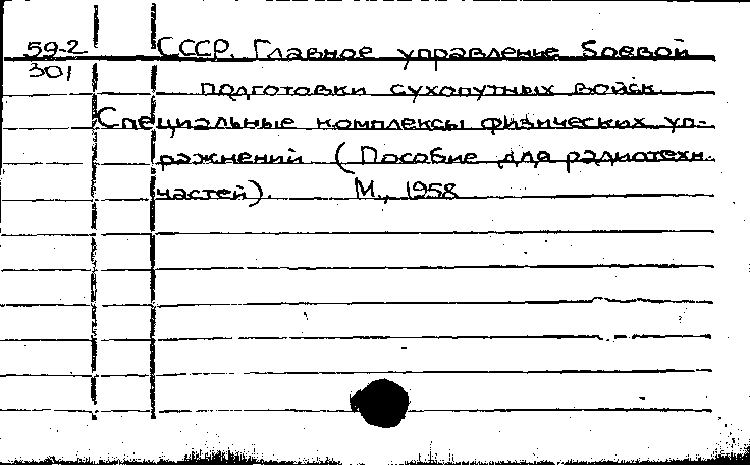 59-2 СССР. Главное управление боевой
301 подготовки сухопутных войск.
Специальные комплексы физических уп-
ражнений (Пособие для радиотехн.
частей). М., 1958